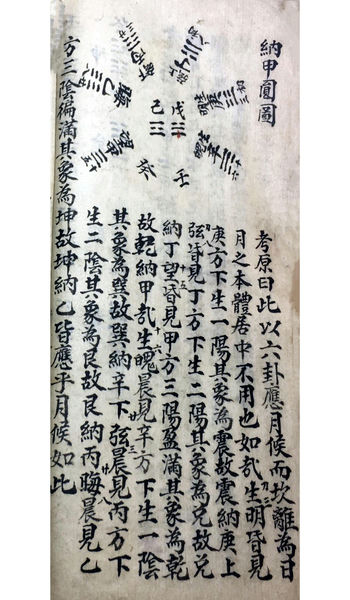 納甲圓圖
戊
己
壬
癸
考原曰此以六卦應月候而坎離為日
月之本體居中不用也如哉生明昏見
庚方下生一陽其象為震故震納庚上
弦昏見丁方下生一陽其象為兌故兌
納丁望昏見甲方三陽盈滿其象為乾
故乾納甲哉生魄晨見辛方下生一陰
其象為巽故巽納辛下弦晨見丙方下
生二陰其象為艮故艮納丙晦晨見乙
方三陰徧滿其象為坤故坤納乙皆應乎月候如此